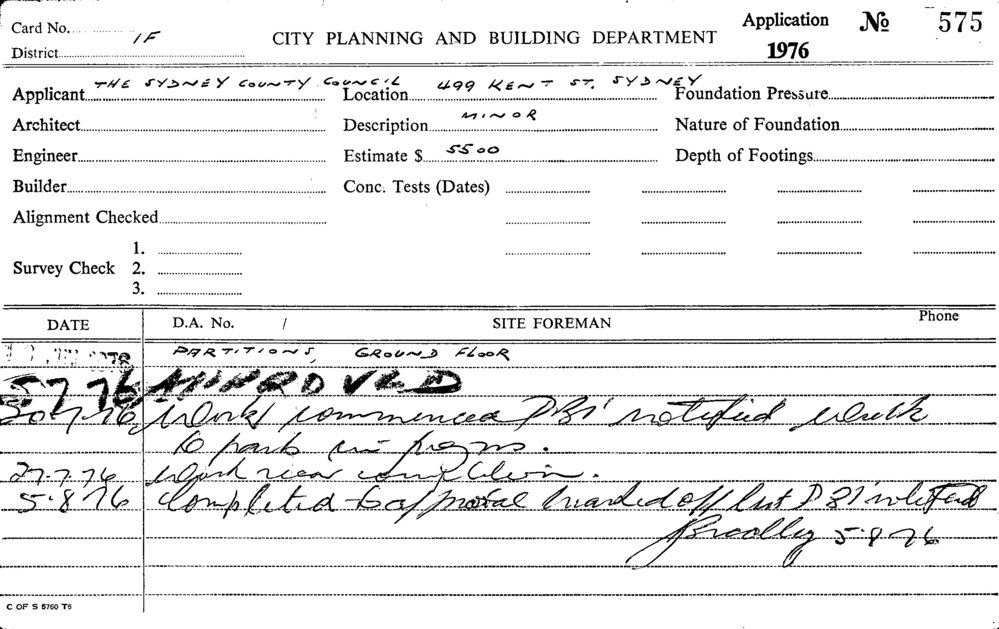 Card No. Application No 575
1F
District CITY PLANNING AND BUILDING DEPARTMENT 1976
Applicant THE SYDNEY COUNTY COUNCIL Location 499 KENT ST. SYDNEY Foundation Pressure
Architect Description MINOR Nature of Foundation
Engineer Estimate $ 5500 Depth of Footings
Builder Conc. Tests (Dates)
Alignment Checked
1.
Survey Check 2.
3.
DATE D.A. No. / SITE FOREMAN Phone
PARTITIONS, GROUND FLOOR
5 7 76 APPROVED
20.7.76 Work commenced P.B.I. notified
to parts in
27.7.76 Work near completion.
5.8.76 Completed to approval marked off list P.B.I. notified
5.8.76
C OF S 5760 T6